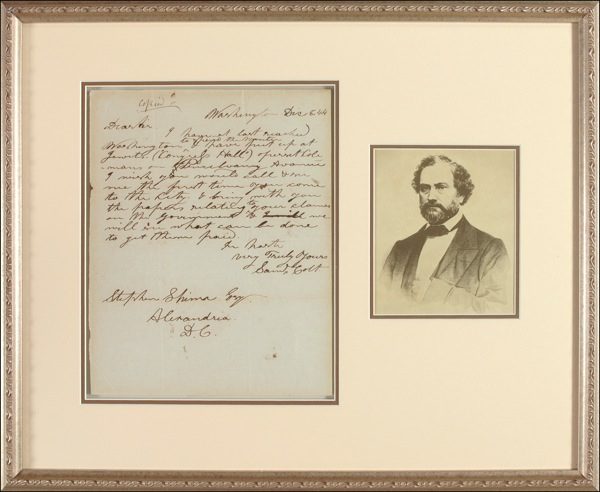 Copied
Washington Dec 6 44
Dear Sir
I have at last reached
Washington & have put up at
(Congress Hall) opposite Cole
mans on Pennsylvania Avenue
I wish you would call &
me the first time you come
to the City & bring with you
the papers relating your claims
on the government &
will in what can be done
to get them paid
In haste
very Truly Yours
Saml Colt
Stephen Esq
Alexandria
D.C.